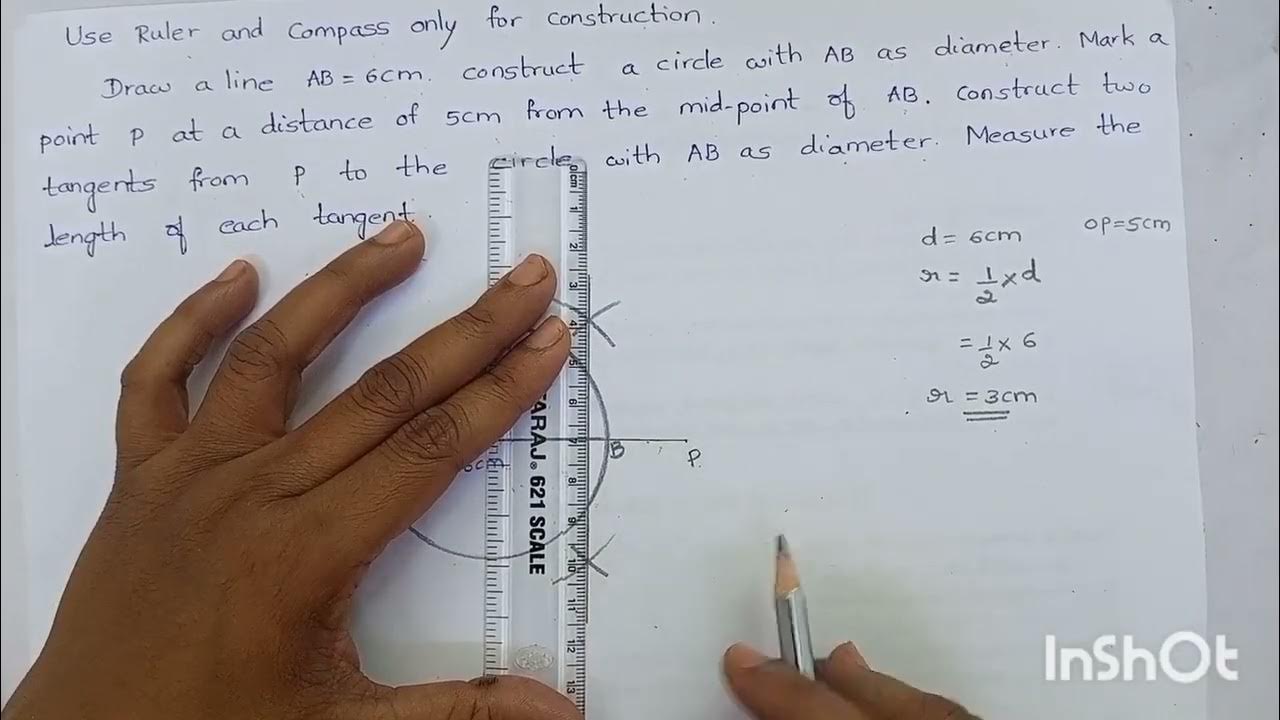 Use Ruler and Compass only for construction.
Draw a line AB = 6cm. construct a circle with AB as diameter. Mark a
point P at a distance of 5cm from the mid-point of AB. construct two
tangents from P to the circle with AB as diameter. Measure the
length of each tangent.
d = 6cm OP=5cm
r = 1/2 × d
= 1/2 × 6
r = 3cm
0/cm 1 2 3 4 5 6 7 8 9 10 11 12 13
ARAJ 621 SCALE
B
P.
6cm
InShOt